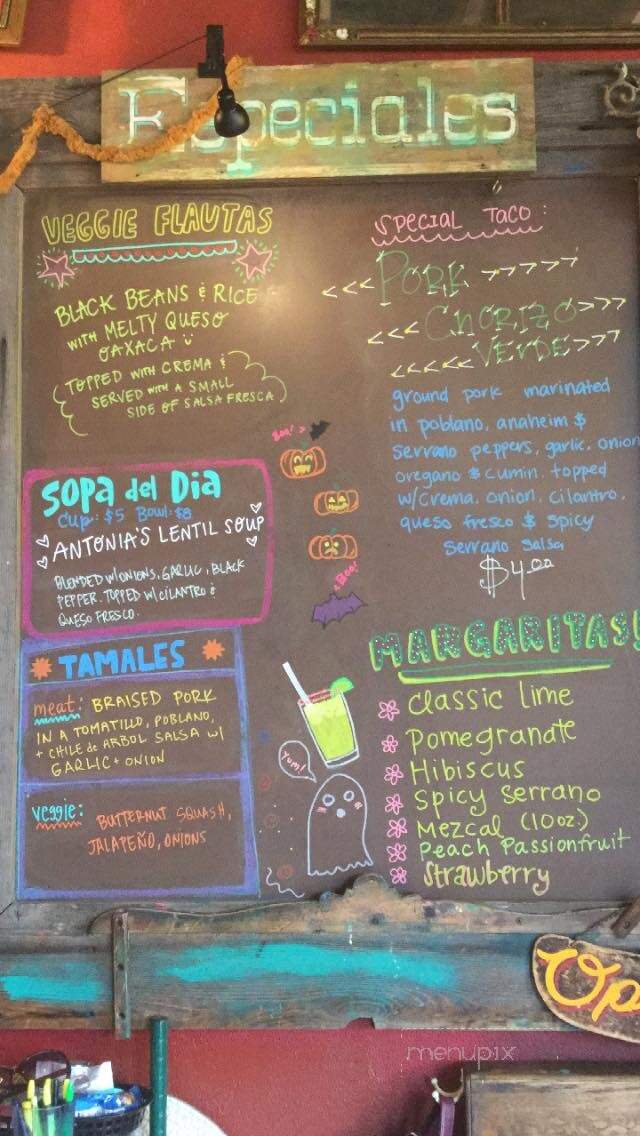 Especiales
VEGGIE FLAUTAS
BLACK BEANS & RICE
WITH MELTY QUESO
OAXACA
(TOPPED WITH CREMA &
SERVED WITH A SMALL
SIDE OF SALSA FRESCA)
SOPA del Dia
Cup: $5 Bowl: $8
ANTONIA'S LENTIL SOUP
BLENDED W/ONIONS, GARLIC, BLACK
PEPPER. TOPPED W/ CILANTRO &
QUESO FRESCO.
TAMALES
meat: BRAISED PORK
IN A TOMATILLO, POBLANO,
+ CHILE de ARBOL SALSA W/
GARLIC + ONION
veggie: BUTTERNUT SQUASH,
JALAPEÑO, ONIONS
Boo!
Boo!
Yum!
SPECIAL TACO:
<<< PORK >>>>>>
<<< CHORIZO >>>
<<<<< VERDE >>>
ground pork marinated
in poblano, anaheim &
serrano peppers, garlic, onion
oregano & cumin. topped
w/crema, onion, cilantro,
queso fresco & spicy
serrano salsa
$4.00
MARGARITAS!
Classic lime
Pomegranate
Hibiscus
Spicy Serrano
Mezcal (10oz)
Peach Passionfruit
Strawberry
Op
menupix